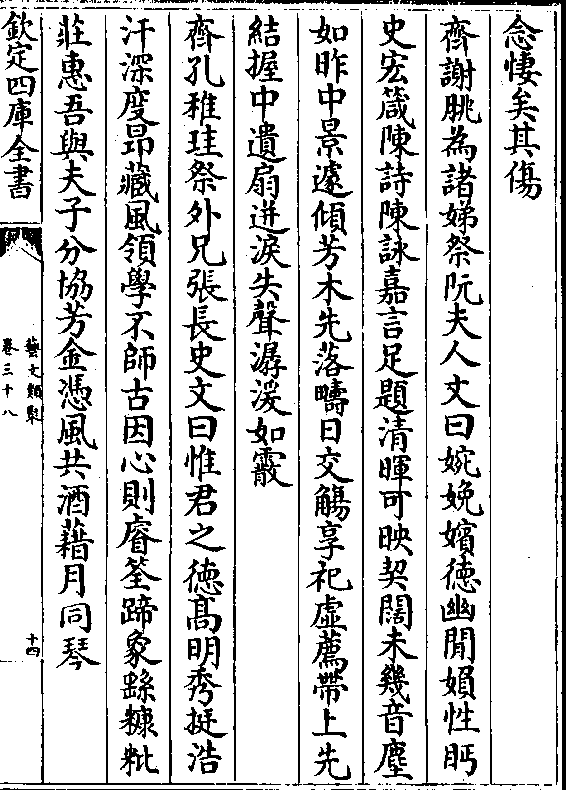 念悽矣其傷
齊謝朓為諸娣祭阮夫人文曰婉娩嬪德幽閒娟性眄
史宏箴陳詩陳詠嘉言足題清暉可映契闊未幾音塵
如昨中景遽傾芳木先落疇日交觴享祀虛薦帶上先
結握中遺扇迸淚失聲潺湲如霰
齊孔稚珪祭外兄張長史文曰惟君之德高明秀挺浩
汗深度昂藏風領學不師古因心則睿筌蹄象繇糠粃
莊惠吾與夫子分協芳金憑風共酒藉月同琴
欽定四庫全書
藝文類聚
卷三十八
十四